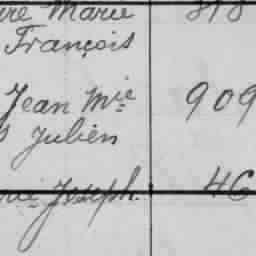 Marie 818
François
Jean Mie 909
Julien
Joseph. 46